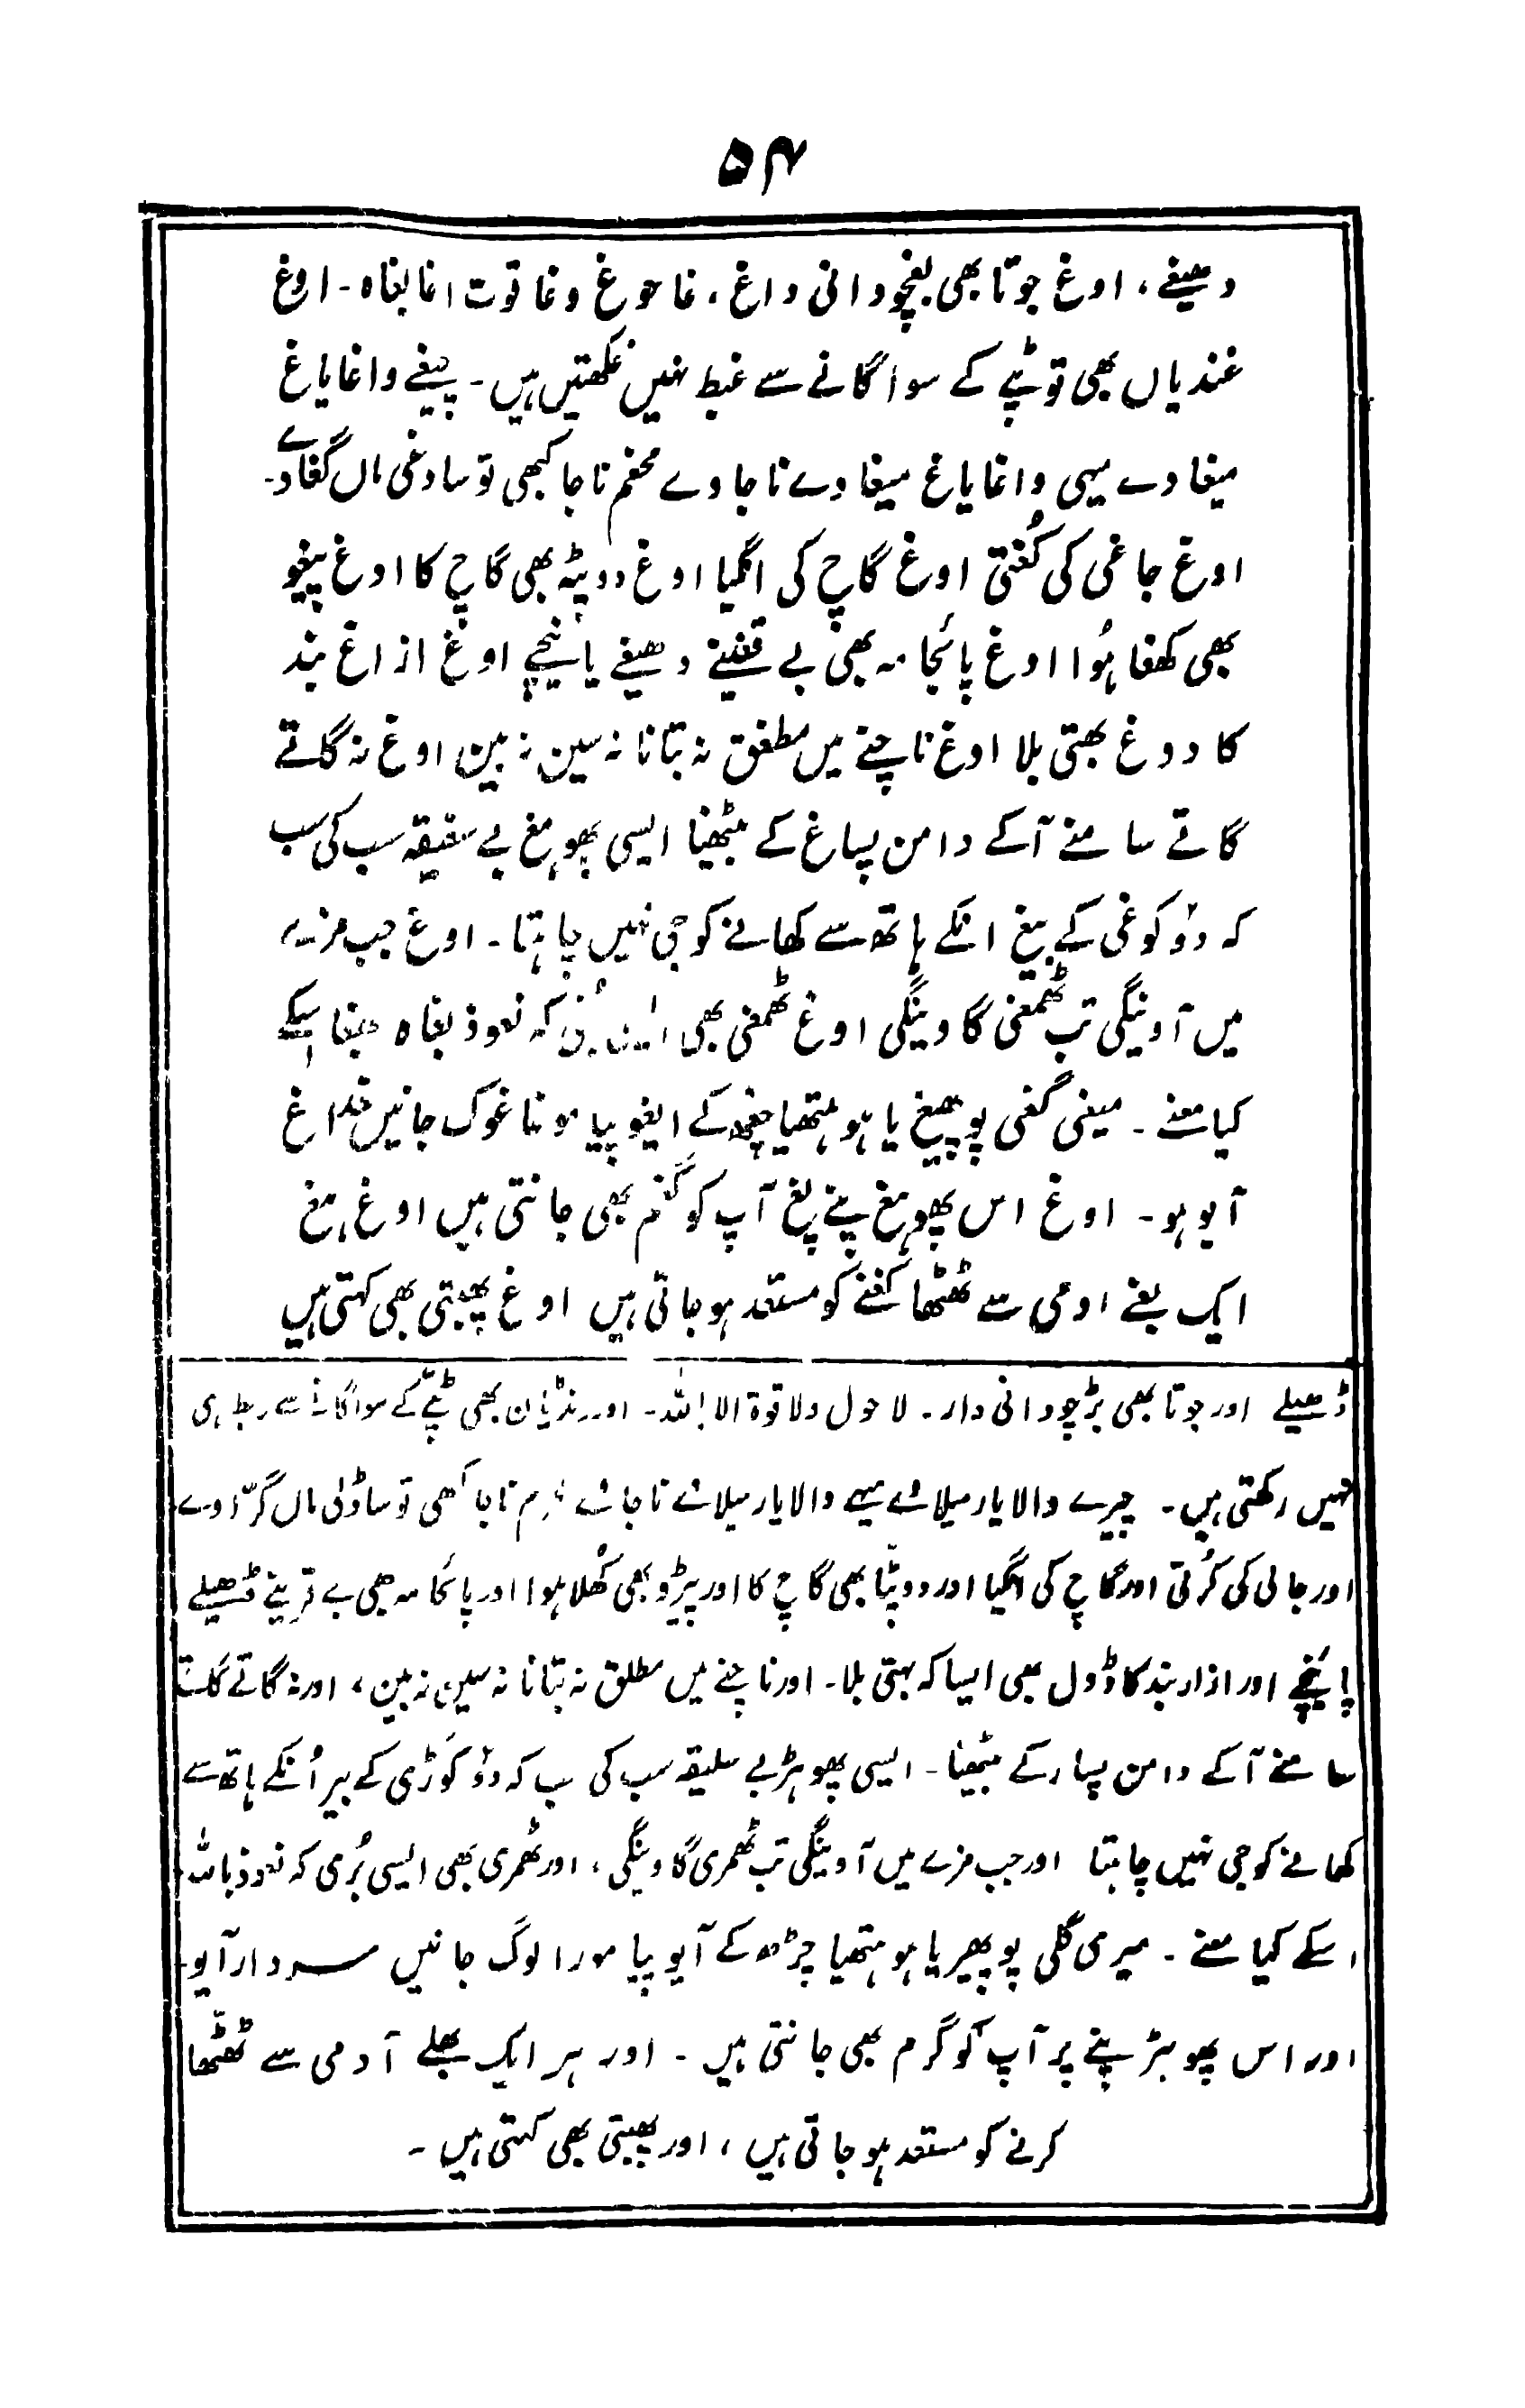 ۵۴
دھیغے، اوغ جوتا بھی بغچودانی داغ، غاحوغ وغاقوت اغابغاہ۔ اوغ
غنڈیاں بھی توٹپے کے سواگانے سے غبط نہیں غکھتیں ہیں۔ پیغے واغایاغ
میغا دے سیی واغایاغ میغا دے نا جاوے محغم نا جا کبھی تو سادغی ماں گغادے۔
اوغ جاغی کی کُغتی اوغ گاچ کی انگیا اوغ دوپٹہ بھی گاچ کا اوغ پیغو
بھی کھغا ہُوا اوغ پائجامہ بھی بے قغینے دھیغے پائنچے اوغ ازاغ بند
کا دوغ بھتی بلا اوغ ناچنے میں مطغق نہ بتانا نہ سین نہ بین اوغ نہ گاتے
گاتے سامنے آکے دامن پساغ کے بٹھینا ایسی پھوہغ بے سغیقہ سب کی سب
کہ دو کوغی کے بیغ انکے ہاتھ سے کھانے کو جی نہیں چاہتا۔ اوغ جب مزے
میں آوینگی تب ٹھمغی گاوینگی اوغ ٹھمغی بھی کہ نعوذ بغاہ اسکے
کیا معنے۔ میغی گغی پوپھیغ یا ہو ہتھیا چغھ کے ایغو پیا موغا غوک جانیں غداغ
آیو ہو۔ اوغ اس پھوہغ پنے پغ آپ کو گغم بھی جانتی ہیں اوغ ہغ
ایک بغے ادمی سے ٹھٹھا کغنے کو مستعد ہو جاتی ہیں اوغ پھبتی بھی کہتی ہیں
ڈھیلے اور جوتا بھی بڑچودانی دار۔ لا حول ولا قوۃ الا باللہ۔ اور رنڈیاں بھی ٹپّے کے سواگانے سے ربط ہی
نہیں رکھتی ہیں۔ چیرے والا یار میلا دے سیے والا یار میلا دے نا جا دے محرم نا جا کبھی تو ساڈلی ماں گرّا دے
اور جالی کی کُرتی اور گاچ کی انگیا اور دوپٹّا بھی گاچ کا اور پیڑو بھی کُھلا ہوا اور پائجامہ بھی بے قرینے ڈھیلے
پائنچے اور ازار بند کا ڈول بھی ایسا کہ بہتی بلا۔ اور ناچنے میں مطلق نہ بتانا نہ سین نہ بین، اور نہ گاتے گاتے
سامنے آکے دامن پسار کے بٹھینا۔ ایسی پھوہڑ بے سلیقہ سب کی سب کہ دو کَوڑی کے بیر اُنکے ہاتھ سے
کھانے کو جی نہیں چاہتا اور جب مزے میں آوینگی تب ٹُھمری گاوینگی، اور ٹھمری بھی ایسی بُری کہ نعوذ باللہ
اسکے کیا معنے۔ میری گلی پوپھیر یا ہو ہتھیا چڑھ کے آیو پیا مورا لوگ جانیں سردار آیو۔
اور اس پھوہڑ پنے پر آپ کو گرم بھی جانتی ہیں۔ اور ہر ایک بھلے آدمی سے ٹھٹّھا
کرنے کو مستعد ہو جاتی ہیں، اور پھبتی بھی کہتی ہیں۔